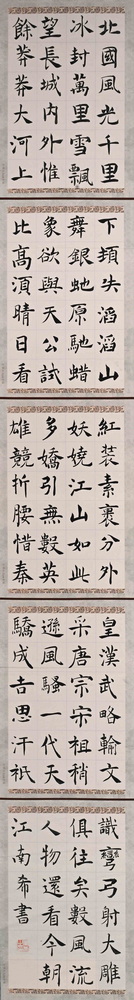 北國風光千里
冰封萬里雪飄
望長城内外惟
餘莽莽大河上
下頓失滔滔山
舞銀虵原馳蜡
象欲與天公試
比高須晴日看
紅装素裹分外
妖嬈江山如此
多嬌引無數英
雄競折腰惜秦
皇漢武略輸文
采唐宗宋祖稍
遜風騷一代天
驕成吉思汗衹
識彎弓射大雕
俱往矣數風流
人物還看今朝
江南希書